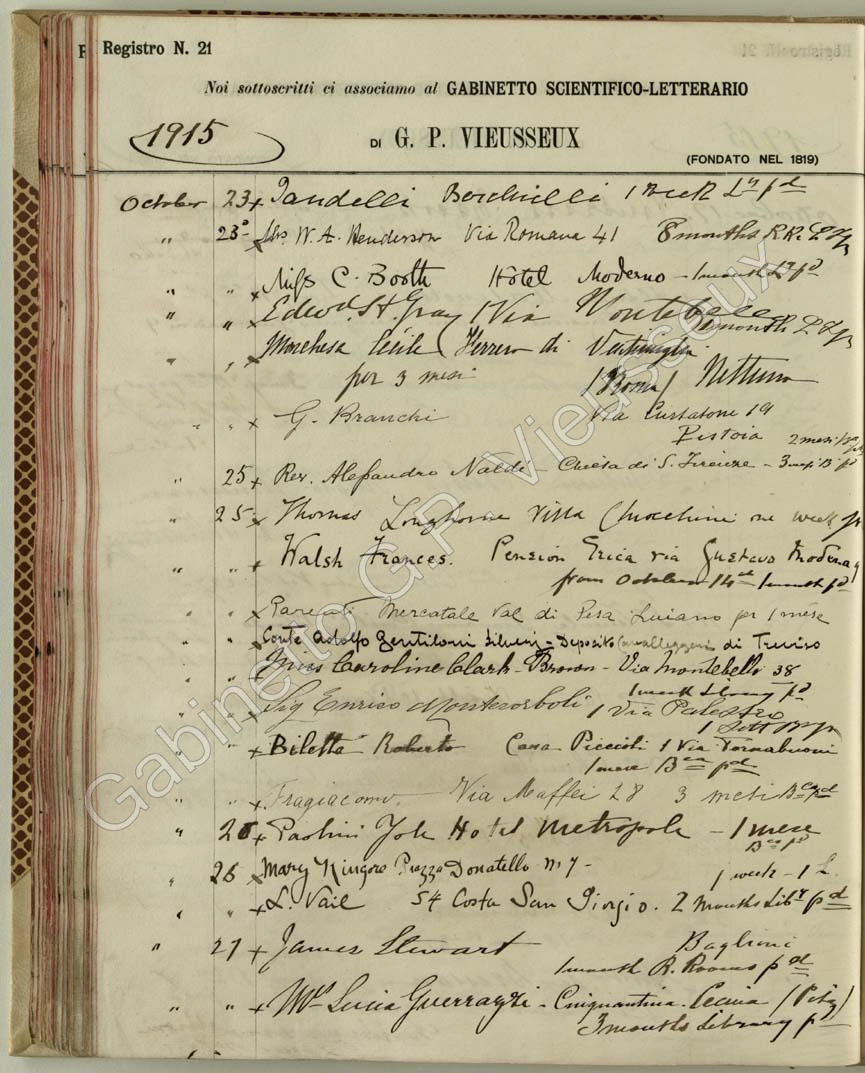 Registro N. 21
Noi sottoscritti ci associamo al GABINETTO SCIENTIFICO-LETTERARIO
1915
DI G. P. VIEUSSEUX
(FONDATO NEL 1819)
October 23 x 1 Week pd
" 23 x Mrs W. A. Henderson Via Romana 41 8 months R.R.
" " x Miss C. Booth Hotel Moderno - 1 month pd
" " x Edwd. St. Gray 1 Via Montebello
1 month
" " x Marchesa Cecile Ferrero di Ventimiglia
per 3 mesi / Roma / Nettuno
" " x G. Branchi Via Curtatone 19
Pistoia 2 mesi
" 25 x Rev. Alessandro Naldi - Chiesa di S. Firenze - 3 mesi B pd
" 25 x Thomas Longhorne Villa one week
" " x Walsh Frances. Pension Erica via Gustavo Modena 9
from October 14th 1 month pd
" " x Parenti Mercatale Val di Pesa Luciano per 1 mese
" " x Conte Adolfo Gentiloni Silverj - Deposito Cavalleggeri di Treviso
" " x Miss Caroline Clark-Brown - Via Montebello 38
1 month Library pd
" " x Sig Enrico Montecorboli 1 Via Palestro
1 Sett
" " x Biletta Roberto Casa Piccioli 1 Via Tornabuoni
1 mese Bca pd
" " x Fragiacomo. Via Maffei 28 3 mesi Bca pd
" 26 x Paolini Jole Hotel Metropole - 1 mese
Bca pd
" 26 x Mary Kingore Piazza Donatello No 7 -
1 week - 1 L.
" " x L. Vail 54 Costa San Giorgio. 2 Months Liby pd
" 27 x James Stewart Baglioni
1 month R. Rooms pd
" " x Lucia Guerrazzi - Cinquantina - Cecina (Pisa)
3 months Library pd
Gabinetto G.P. Vieusseux